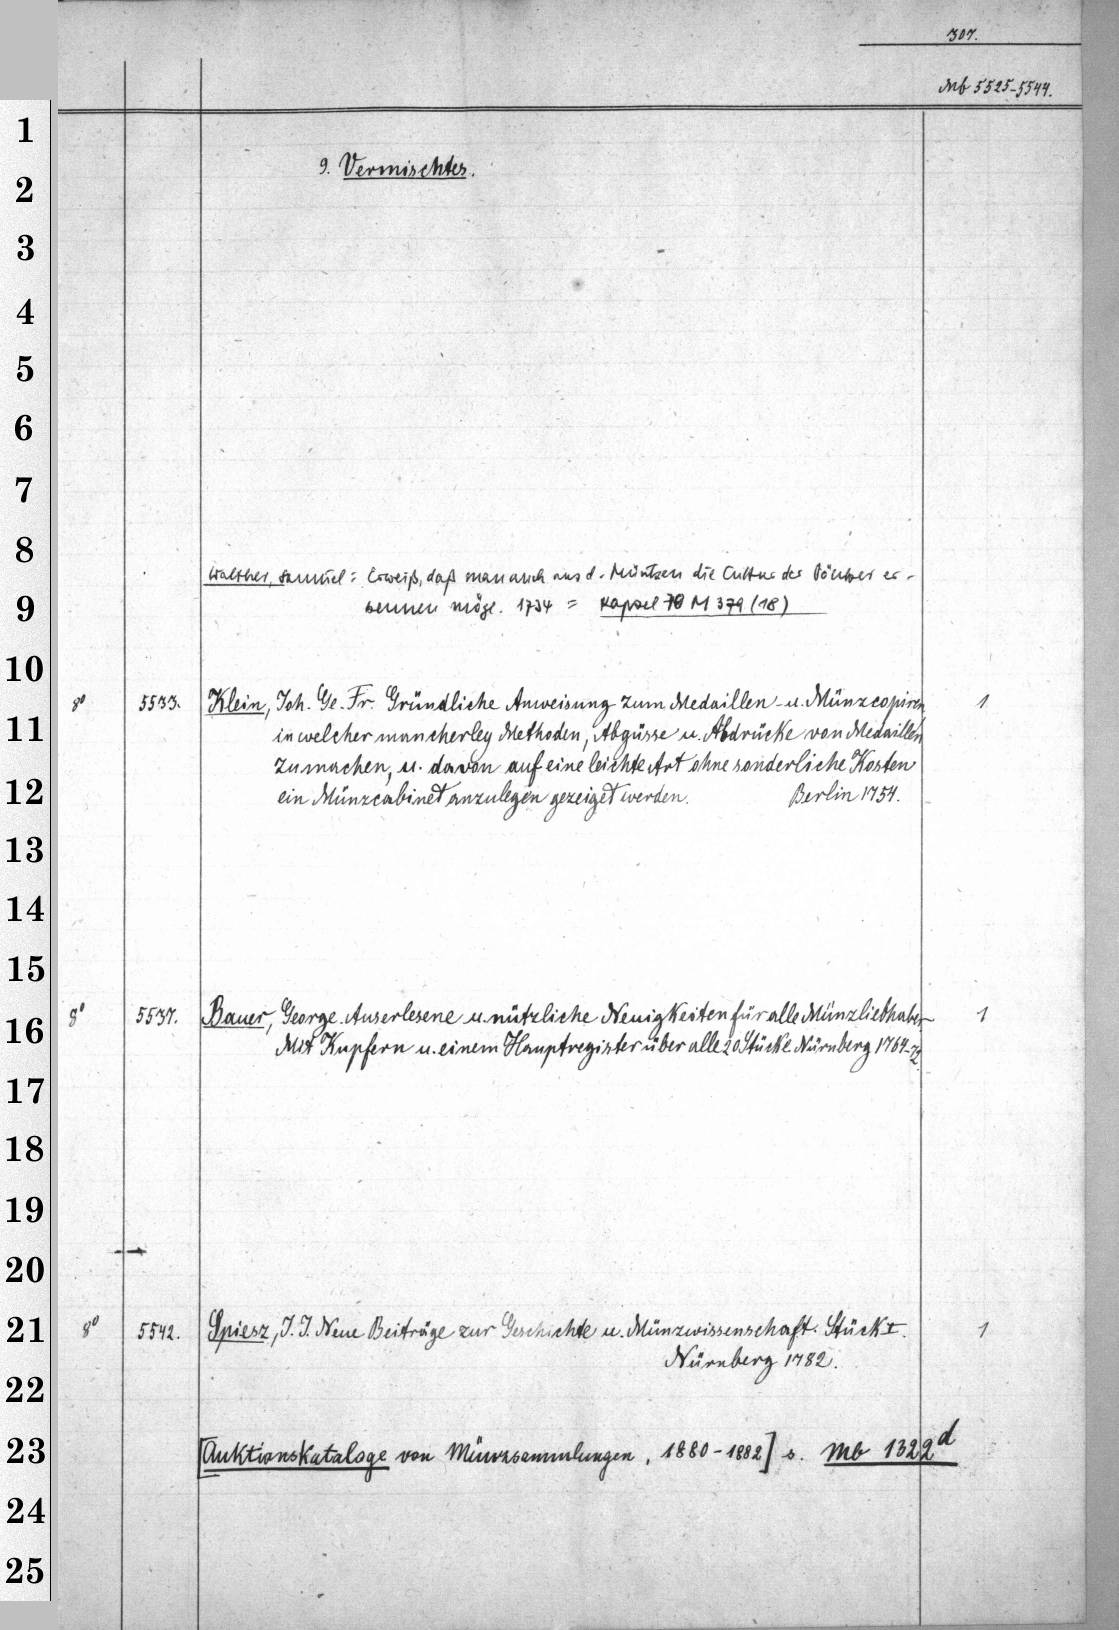 307.
Mb 5525-5544.
1
9. Vermischtes.
2
3
4
5
6
7
8
Walther, Samuel: Erweiß, daß man auch aus d. Müntzen die Cultur der Völcker er-
9
kennen möge. 1734 = Kapsel 78 M 379 (18)
10
8° 5533. Klein, Joh. Ge. Fr. Gründliche Anweisung zum Medaillen- u. Münzcopiren, 1
11
in welcher mancherley Methoden, Abgüsse u. Abdrücke von Medaillen
zu machen, u. davon auf eine leichte Art ohne sonderliche Kosten
12
ein Münzcabinet anzulegen gezeiget werden. Berlin 1754.
13
14
15
8° 5537. Bauer, George. Auserlesene u. nützliche Neuigkeiten für alle Münzliebhaber 1
16
Mit Kupfern u. einem Hauptregister über alle 20 Stücke Nürnberg 1764-72.
17
18
19
20
8° 5542. Spiesz, J. J. Neue Beiträge zur Geschichte u. Münzwissenschaft. Stück I. 1
21
Nürnberg 1782.
22
[Auktionskataloge von Münzsammlungen, 1880-1882] s. Mb 1322d
23
24
25